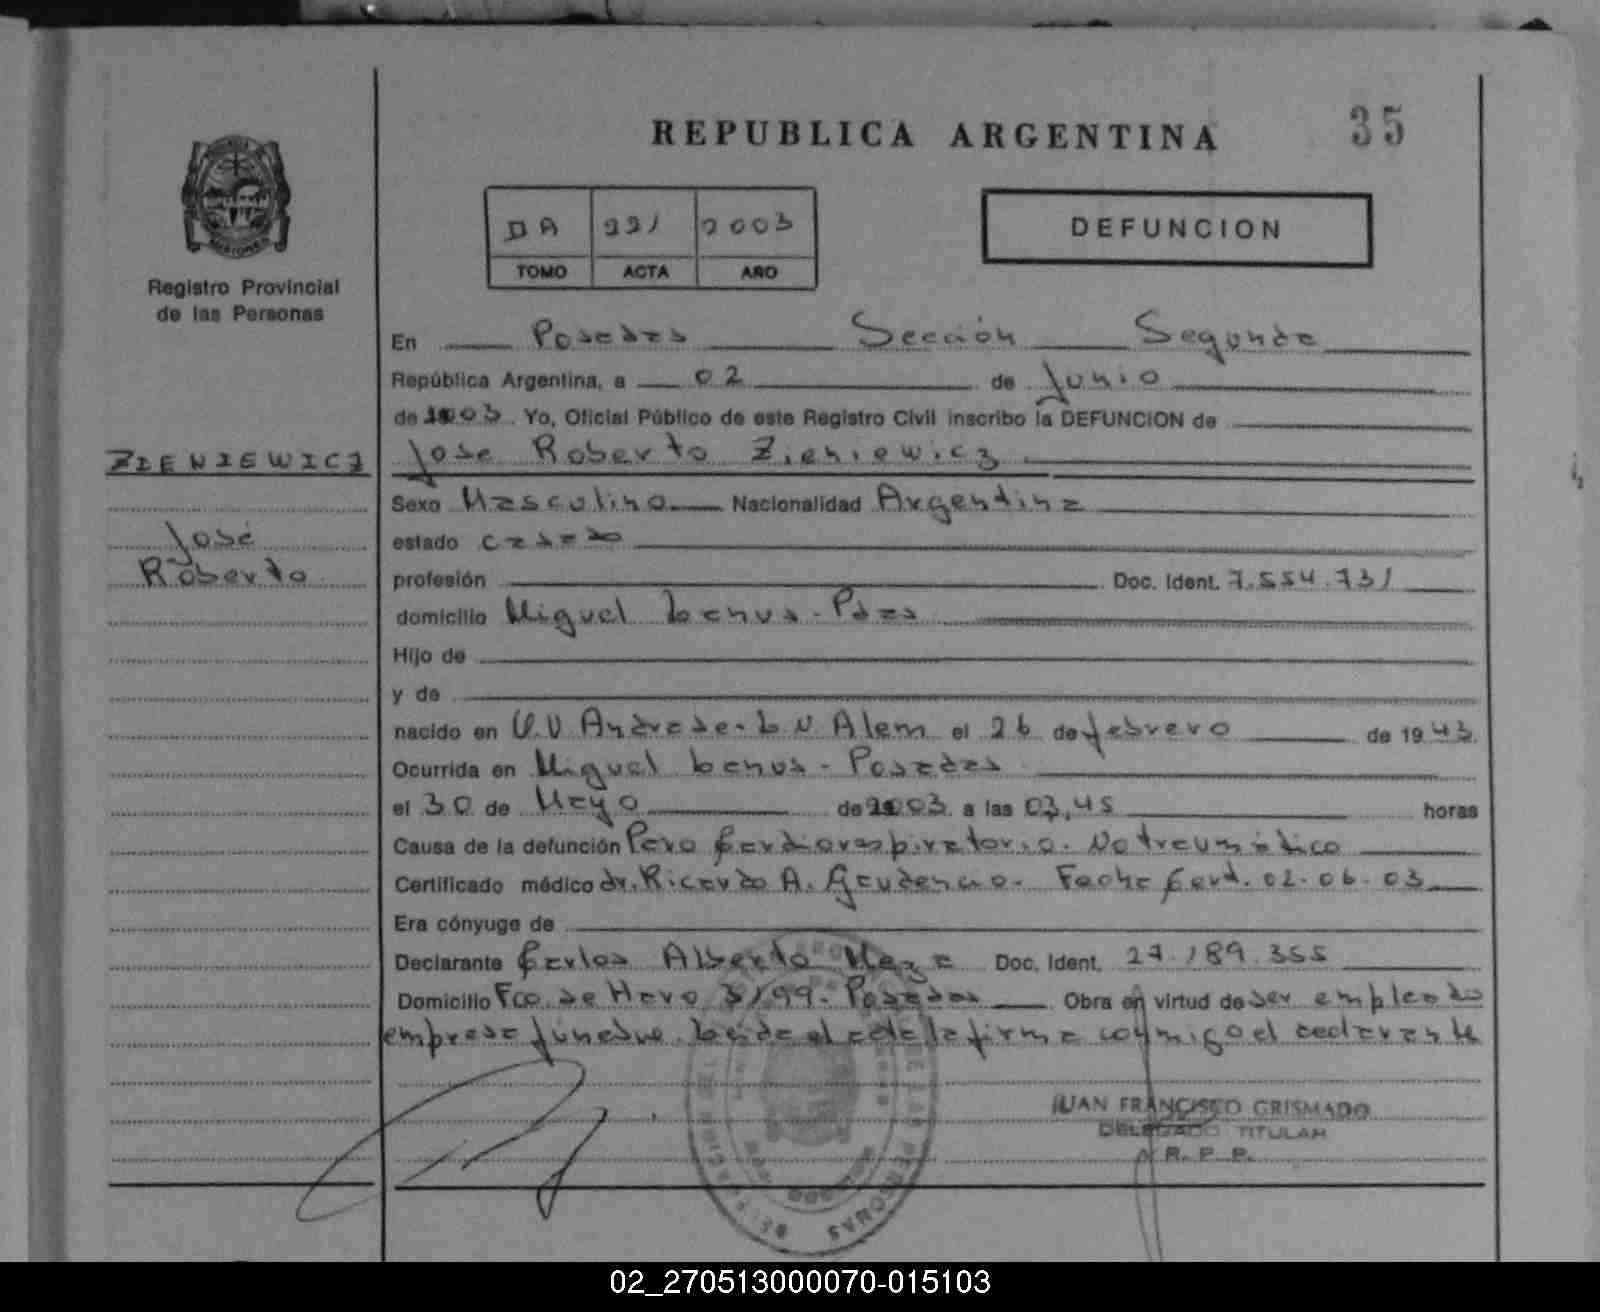 REPUBLICA ARGENTINA
35
DA 221 2003
TOMO ACTA AÑO
DEFUNCION
Registro Provincial
de las Personas
En Posadas Sección Segunda
República Argentina, a 02 de Junio
de 2003. Yo, Oficial Público de este Registro Civil inscribo la DEFUNCION de
ZIENIEWICZ
Jose Roberto Zieniewicz
Sexo Masculino Nacionalidad Argentina
José
estado casado
Roberto
profesión Doc. Ident. 7.554.731
domicilio Miguel Lanus - Pdas
Hijo de
y de
nacido en O.V. Andrade - L.N. Alem el 26 de febrero de 1943.
Ocurrida en Miguel Lanus - Posadas
el 30 de Mayo de 2003 a las 03,45 horas
Causa de la defunción Paro Cardiorespiratorio. No traumático
Certificado médico dr. Ricardo A. Gaudencio. Fecha Cert. 02-06-03
Era cónyuge de
Declarante Carlos Alberto Meza Doc. Ident. 27.189.355
Domicilio Fco. de Haro 3199 - Posadas Obra en virtud de ser empleado
empresa fúnebre. Leida el acta la firma conmigo el declarante
JUAN FRANCISCO GRISMADO
DELEGADO TITULAR
R. P. P.
02_270513000070-015103